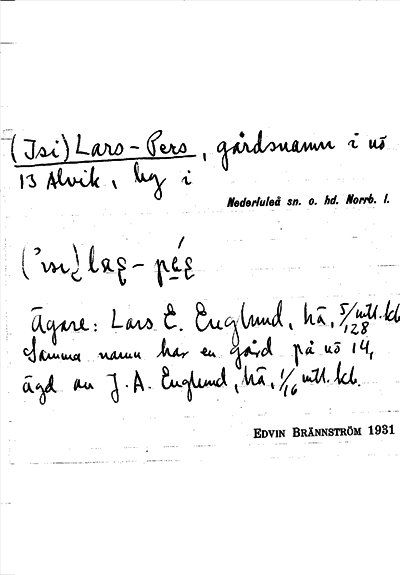 (Isi) Lars-Pers, gårdsnamn i nö
13 Alvik, by i
Nederluleå sn. o. hd. Norrb. l.
Ägare: Lars E. Englund, hä, 5/128 mtl. kb
Samma namn har en gård på nö 14,
ägd av J. A. Englund, hä, 1/16 mtl. kb.
EDVIN BRÄNNSTRÖM 1931